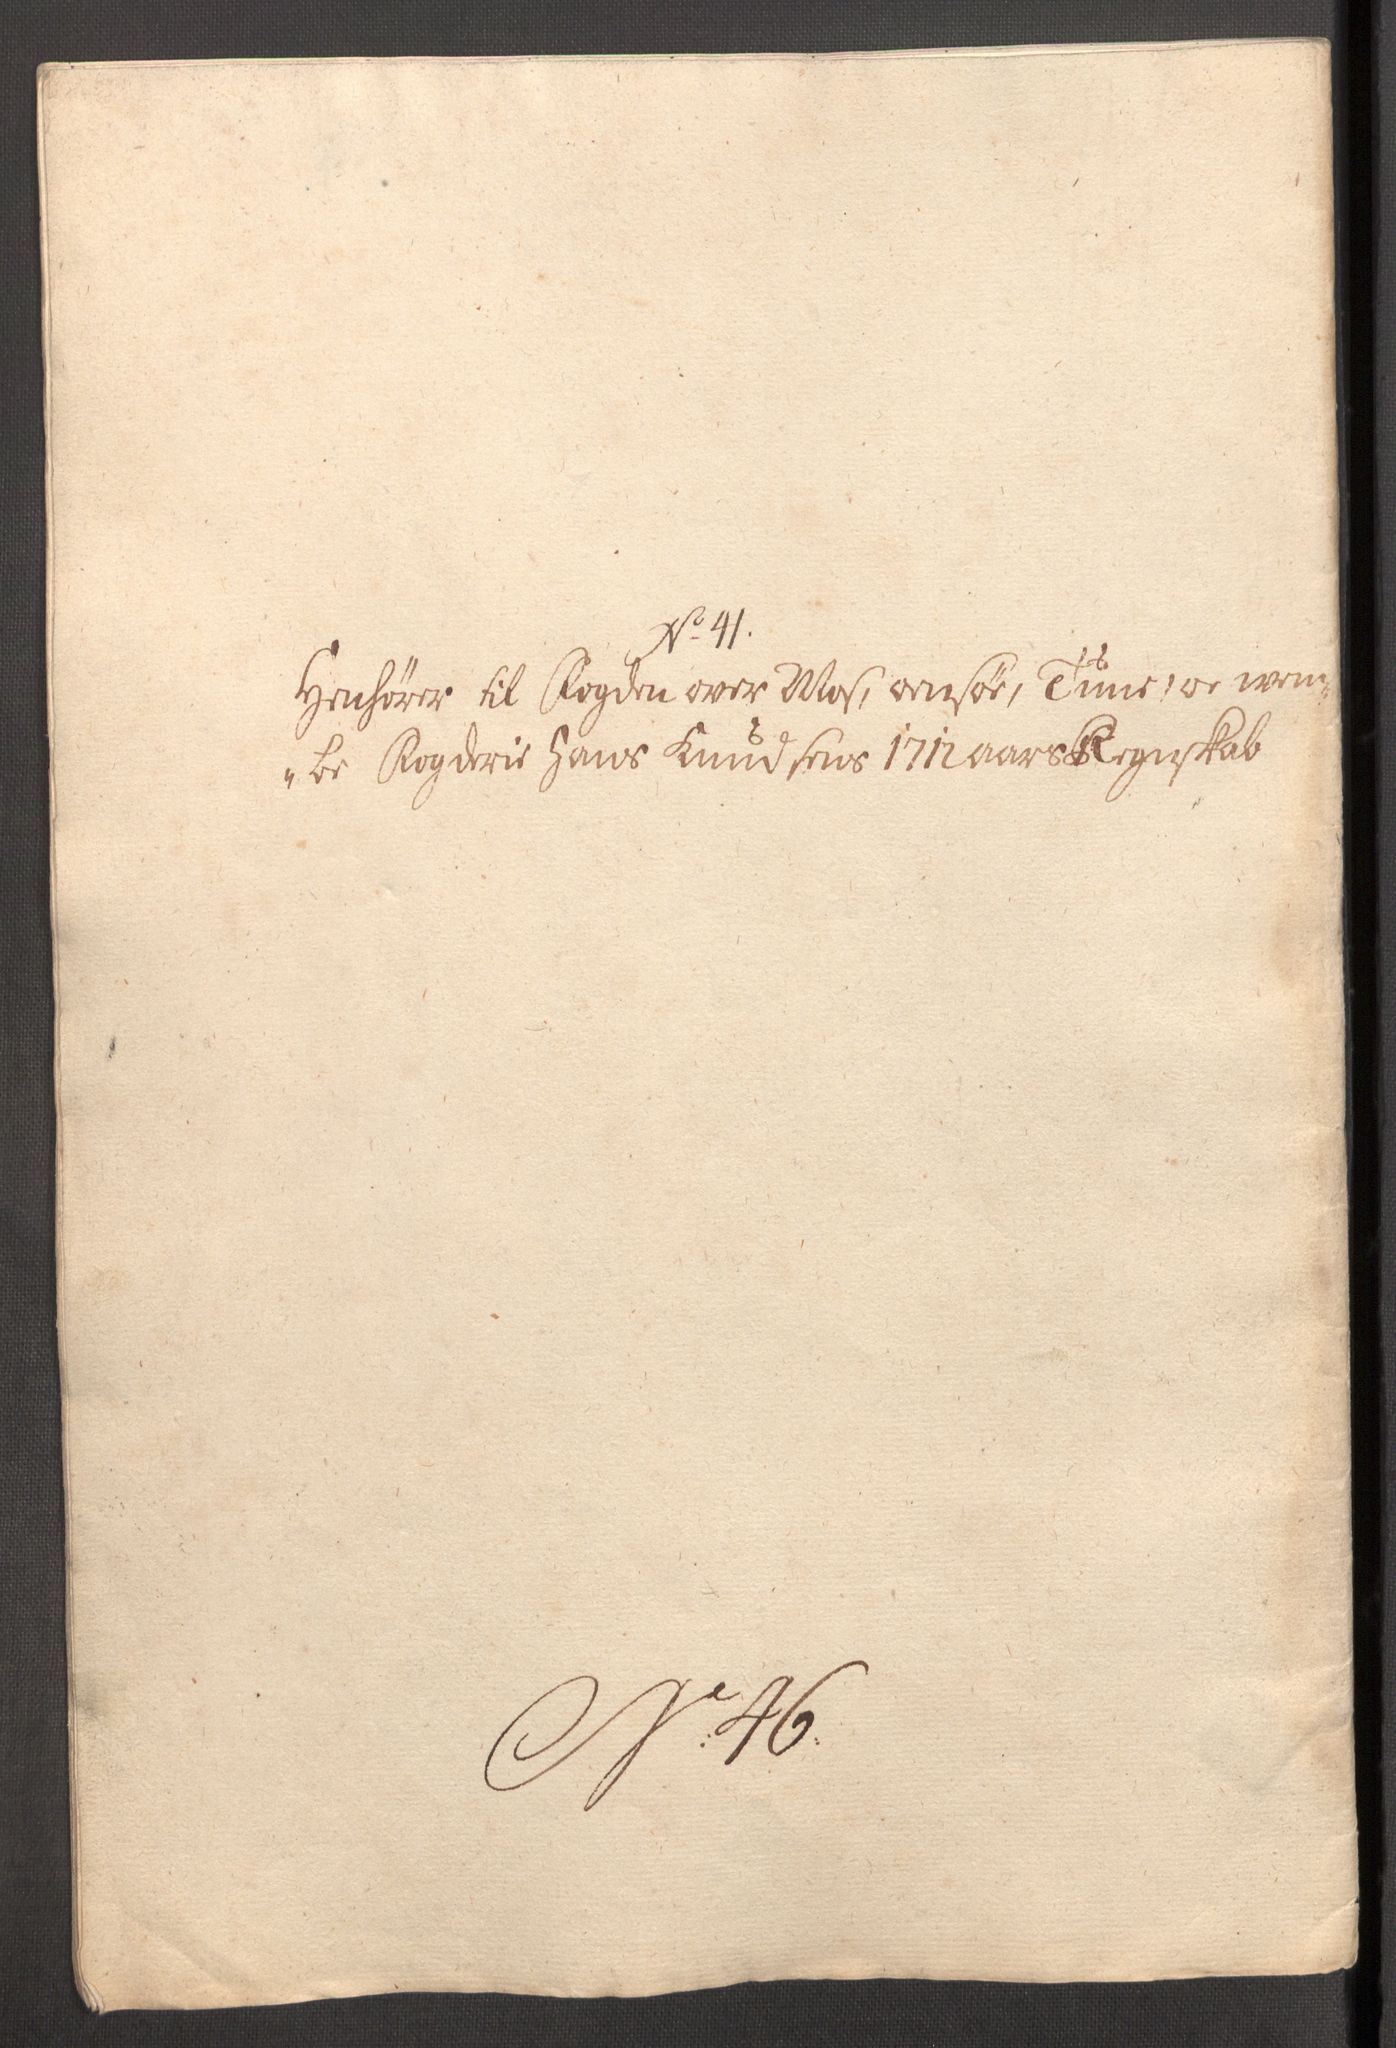 No 41.
Henhører til Fogden over Mos, oensøe, Tune, oc wem„
„be Fogderie Hans Knudsens 1712 aars Regnskab
No: 46.